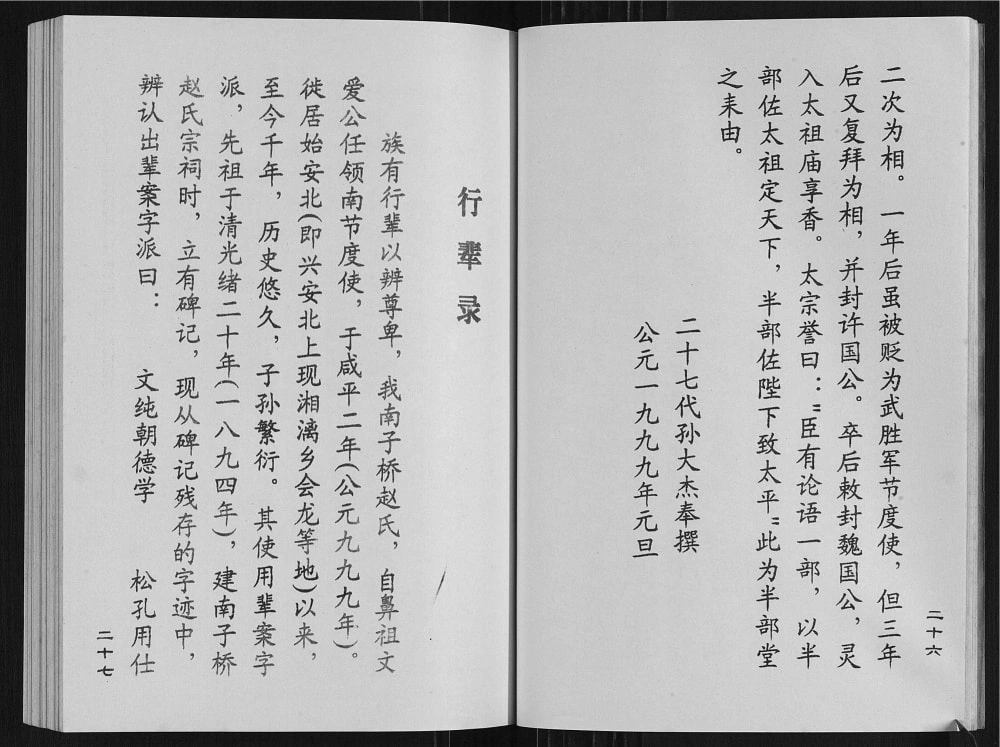 二次为相。一年后虽被贬为武胜军节度使，但三年
后又复拜为相，并封许国公。卒后敕封魏国公，灵
入太祖庙享香。太宗誉曰："臣有论语一部，以半
部佐太祖定天下，半部佐陛下致太平"此为半部堂
之来由。
二十七代孙大杰奉撰
公元一九九九年元旦
二十六
行辈录
族有行辈以辨尊卑，我南子桥赵氏，自鼻祖文
爱公任领南节度使，于咸平二年(公元九九九年)。
徙居始安北(即兴安北上现湘漓乡会龙等地)以来，
至今千年，历史悠久，子孙繁衍。其使用辈案字
派，先祖于清光绪二十年(一八九四年)，建南子桥
赵氏宗祠时，立有碑记，现从碑记残存的字迹中，
辨认出辈案字派曰：　文纯朝德学　松孔用仕
二十七